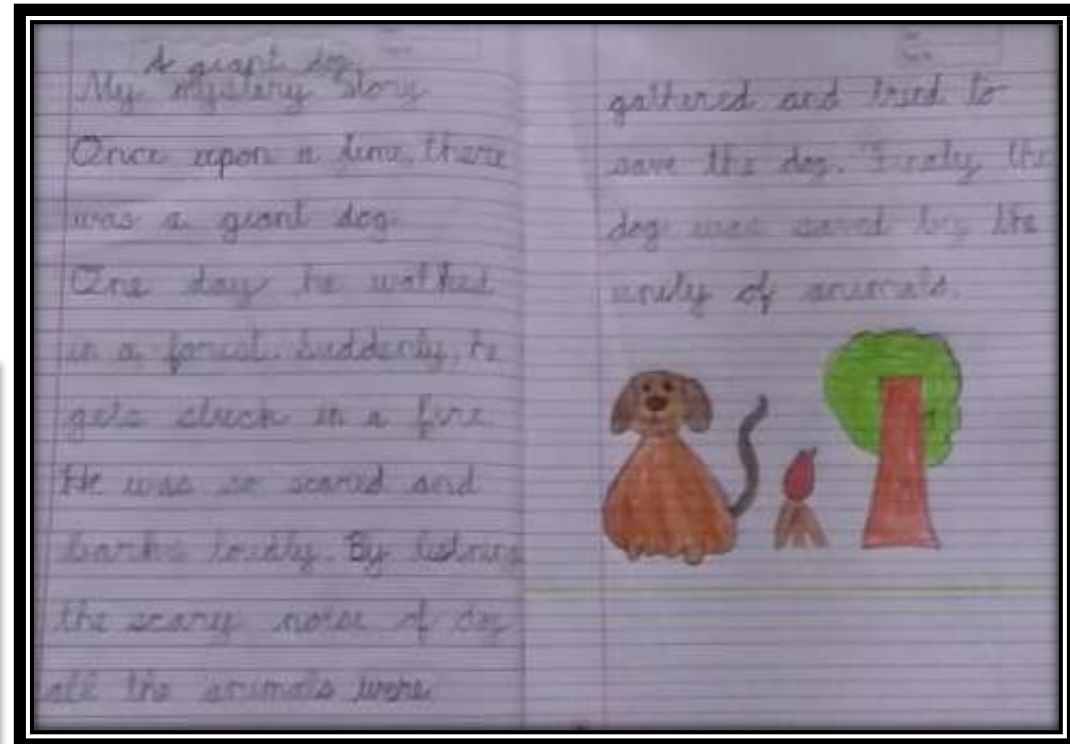 A giant dog
My mystery story
Once upon a time, there
was a giant dog.
One day, he walked
in a forest. Suddenly, he
gets stuck in a fire.
He was so scared and
barks loudly. By listning
the scary noise of dog
all the animals were
gathered and tried to
save the dog. Finaly the
dog was saved by the
unity of animals.